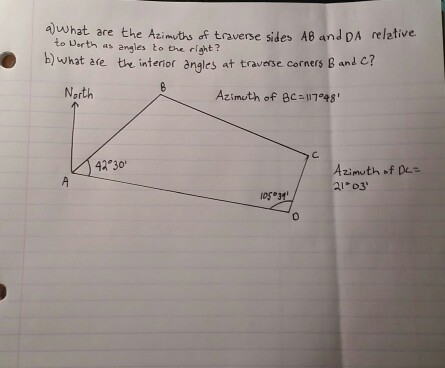 a) What are the Azimuths of traverse sides AB and DA relative
to North as angles to the right?
b) What are the interior angles at traverse corners B and C?
North
B
Azimuth of BC=117°48'
C
42°30'
A
Azimuth of DC=
21°03'
105°39'
D